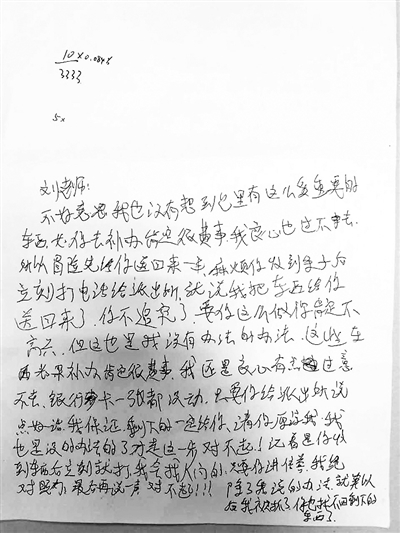 10×0.0848
3333
5×
刘老师:
不好意思我也没有想到包里有这么多重要的
东西 你去补办肯定很费事,我良心也过不去.
所以冒险先给你送回来一半,麻烦你收到东西后
立刻打电话给派出所,就说我把东西给你
送回来了.你不追究了.要你这么做你肯定不
高兴.但这也是我没有办法的办法.这些东
西老早补办肯也很费事.我还是良心有点过意
不去.银行卡一张都没动.只要你给派出所说
点好话.我保证剩下的一定给你.请你原谅我.我
也是没的办法的了才走这一步.对不起!记着是你收
到东西后立刻就打.我会找人问的.只要你讲信誉.我绝
对照办.最后再说一声对不起!!!
除了我说的办法.就算以
后我被抓了.你也找不回剩下的
东西了.